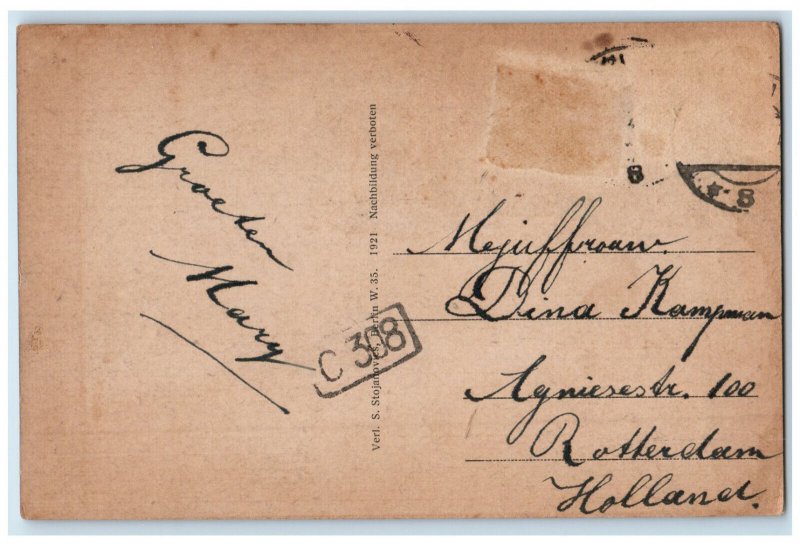 Groeten
Mary
Verl. S. Stojanovits, Berlin W. 35. 1921 Nachbildung verboten
C 308
8
* 8
Mejuffrouw.
Dina Kampman
Agniesestr. 100
Rotterdam
Holland.